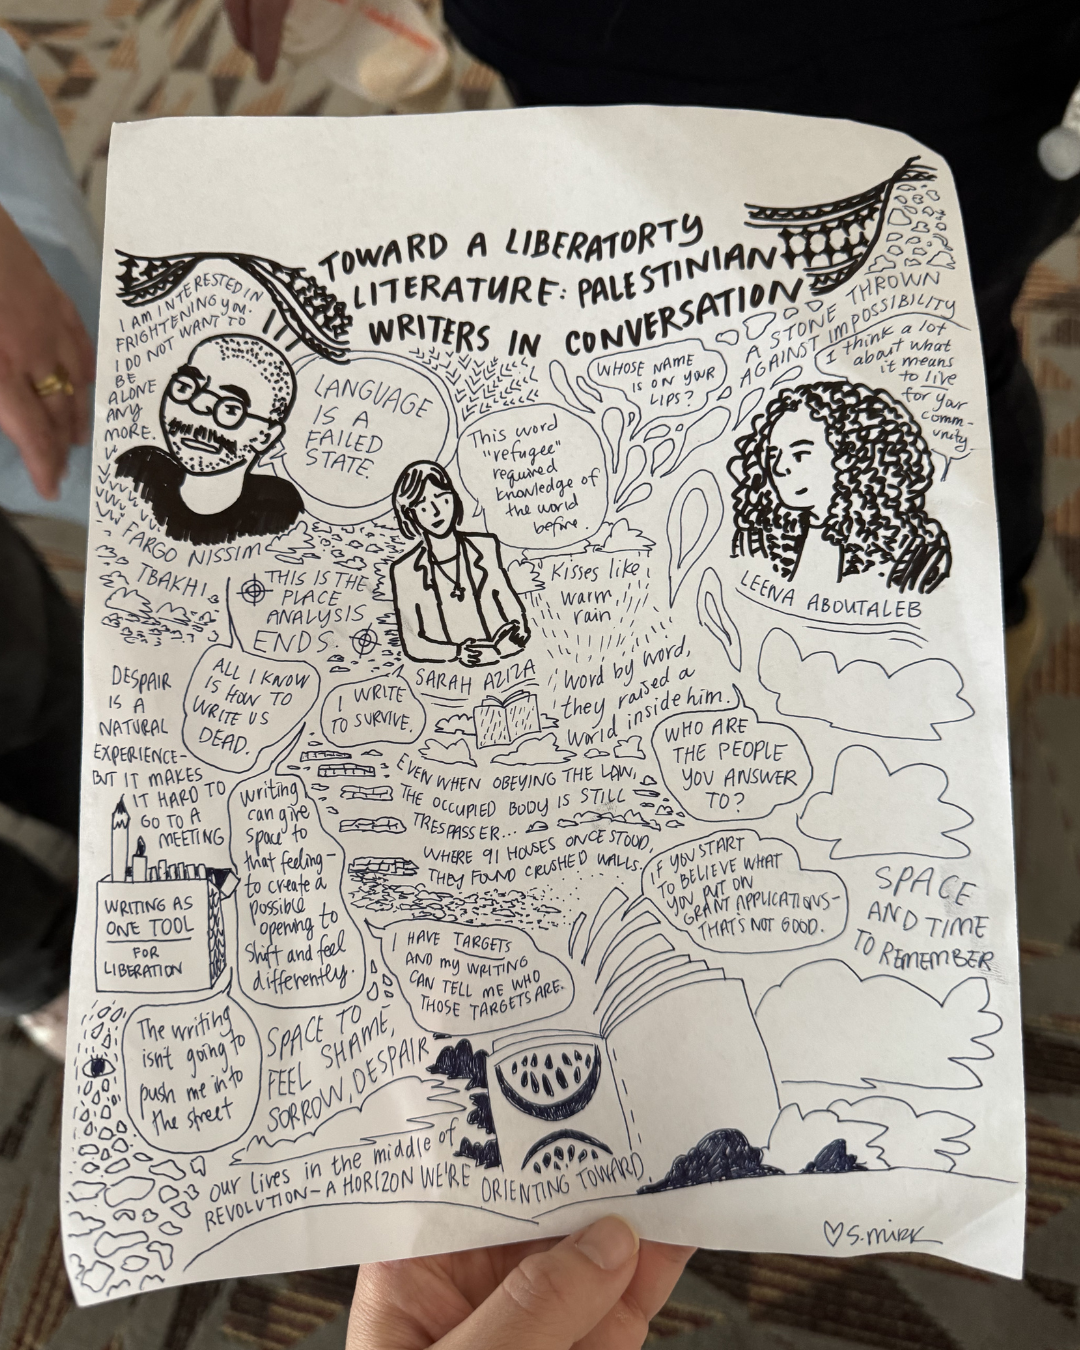 TOWARD A LIBERATORTY
LITERATURE: PALESTINIAN
WRITERS IN CONVERSATION
I AM INTERESTED IN
FRIGHTENING YOU.
I DO NOT WANT TO
BE
ALONE
ANY
MORE.
LANGUAGE
IS A
FAILED
STATE.
FARGO NISSIM
TBAKHI
This word
"refugee"
required
knowledge of
the world
before.
WHOSE NAME
IS ON YOUR
LIPS?
A STONE THROWN
AGAINST IMPOSSIBILITY
I think a lot
about what
it means
to live
for your
comm-
unity.
LEENA ABOUTALEB
THIS IS THE
PLACE
ANALYSIS
ENDS.
SARAH AZIZA
Kisses like
warm
rain
word by word,
they raised a
world inside him.
DESPAIR
IS A
NATURAL
EXPERIENCE-
BUT IT MAKES
IT HARD TO
GO TO A
MEETING
ALL I KNOW
IS HOW TO
WRITE US
DEAD.
I WRITE
TO SURVIVE.
WHO ARE
THE PEOPLE
YOU ANSWER
TO?
EVEN WHEN OBEYING THE LAW,
THE OCCUPIED BODY IS STILL
TRESPASSER...
WHERE 91 HOUSES ONCE STOOD,
THEY FOUND CRUSHED WALLS.
writing
can give
space to
that feeling-
to create a
possible
opening to
shift and feel
differently.
WRITING AS
ONE TOOL
FOR
LIBERATION
IF YOU START
TO BELIEVE WHAT
YOU PUT ON
GRANT APPLICATIONS-
THAT'S NOT GOOD.
SPACE
AND TIME
TO REMEMBER
I HAVE TARGETS
AND my WRITING
CAN TELL ME WHO
THOSE TARGETS ARE.
The writing
isn't going to
push me into
the street
SPACE TO
FEEL SHAME,
SORROW, DESPAIR
our lives in the middle of
REVOLUTION- A HORIZON WE'RE ORIENTING TOWARD
♡ S.MIRK